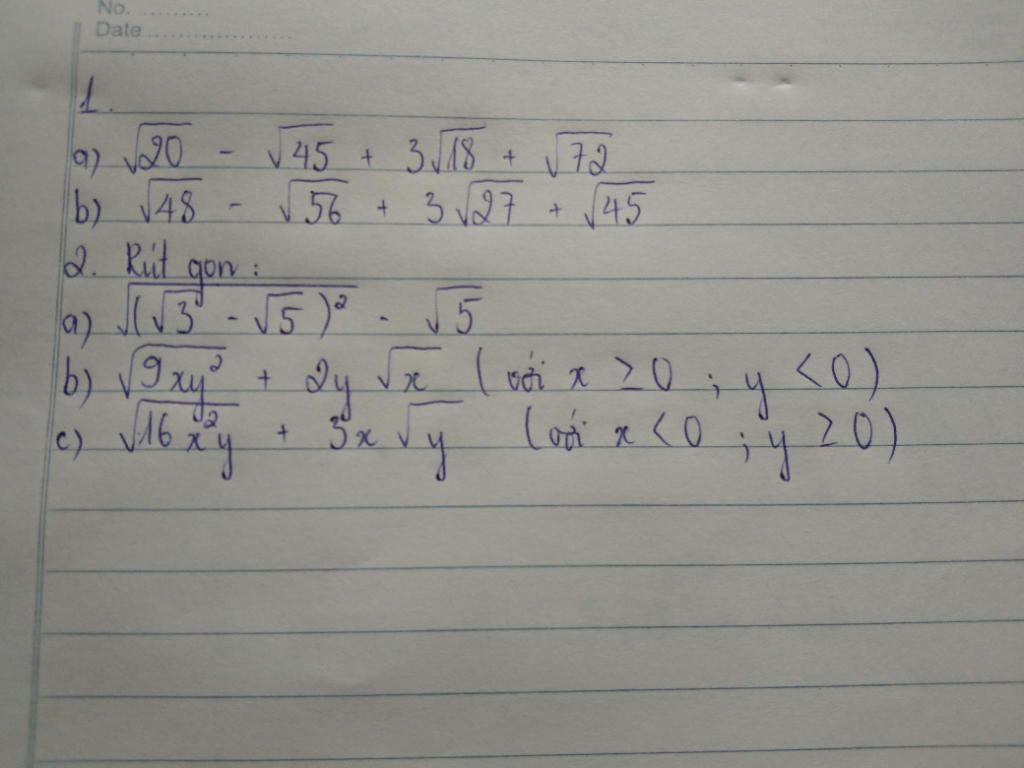 No. .........
Date ...................
1.
a) √20 - √45 + 3√18 + √72
b) √48 - √56 + 3√27 + √45
2. Rút gọn :
a) √(√3 - √5)² - √5
b) √9xy² + 2y √x ( với x ≥ 0 ; y < 0 )
c) √16x²y + 3x √y (với x < 0 ; y ≥ 0 )